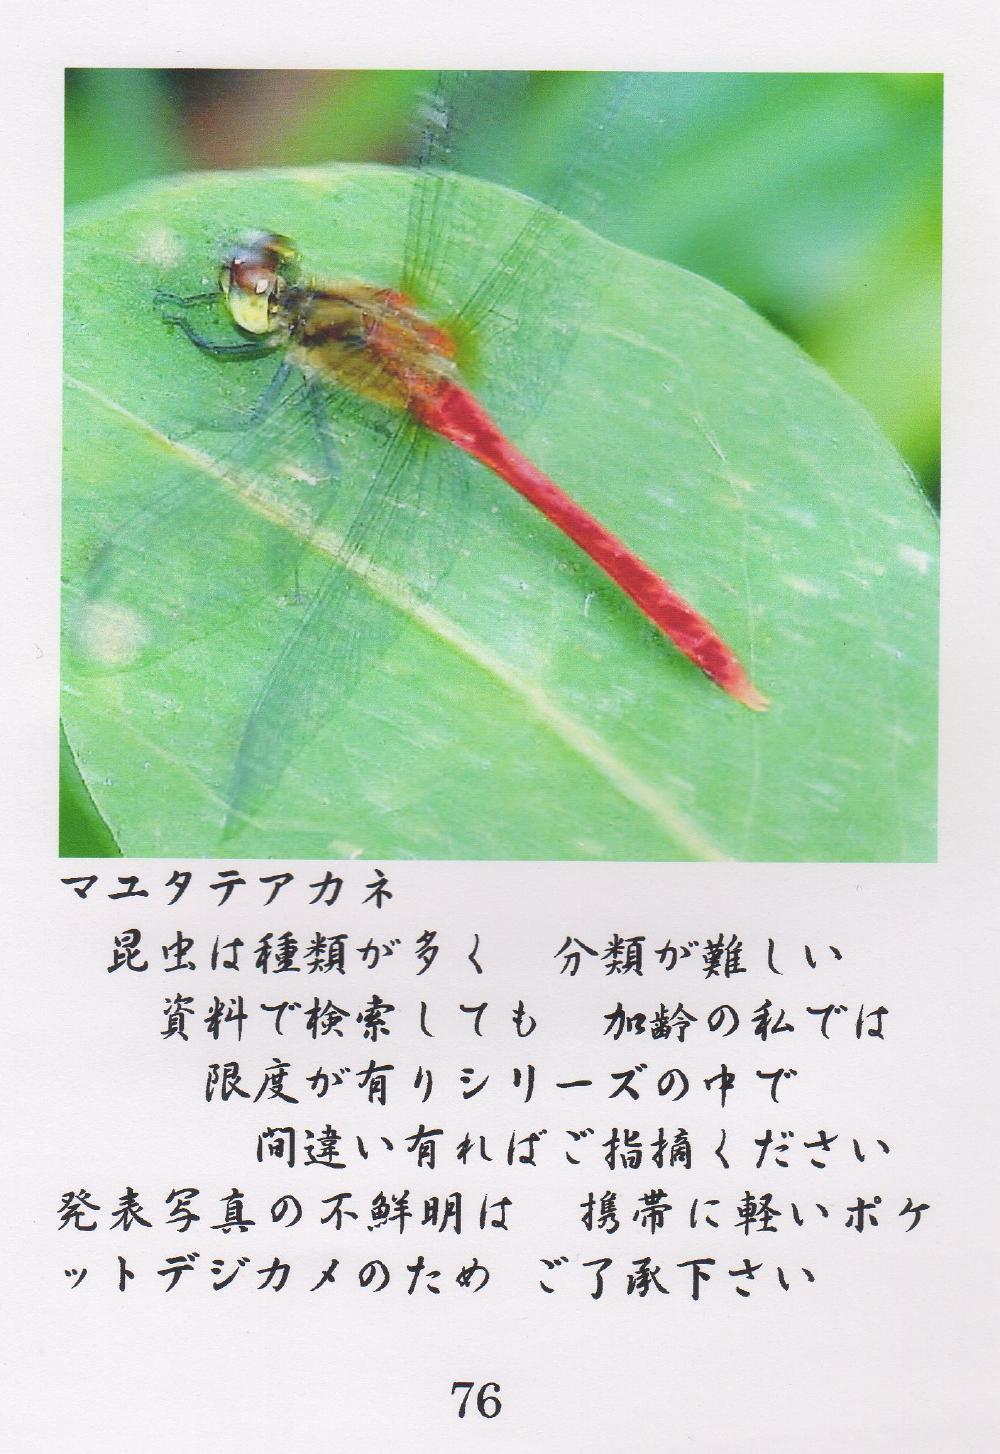 マユタテアカネ
昆虫は種類が多く　分類が難しい
資料で検索しても　加齢の私では
限度が有りシリーズの中で
間違い有ればご指摘ください
発表写真の不鮮明は　携帯に軽いポケ
ットデジカメのため　ご了承下さい
76